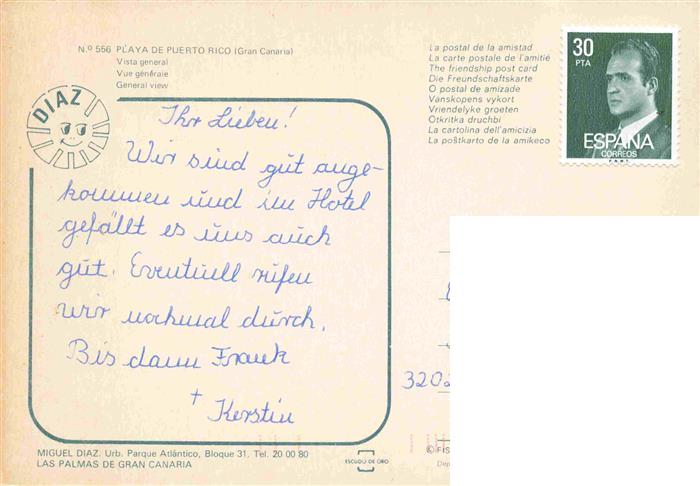 N.º 556 PLAYA DE PUERTO RICO (Gran Canaria)
Vista general
Vue générale
General view
DIAZ
Ihr Lieben!
Wir sind gut ange-
kommen und im Hotel
gefällt es uns auch
gut. Eventuell rufen
wir nochmal durch.
Bis dann Frank
+
Kerstin
La postal de la amistad
La carte postale de l'amitié
The friendship post card
Die Freundschaftskarte
O postal de amizade
Vanskopens vykort
Vriendelyke groeten
Otkritka druchbi
La cartolina dell'amicizia
La poŝtkarto de la amikeco
30
PTA
ESPAÑA
CORREOS
320
MIGUEL DIAZ. Urb. Parque Atlántico, Bloque 31. Tel. 20 00 80
LAS PALMAS DE GRAN CANARIA
ESCUDO DE ORO
© FIS